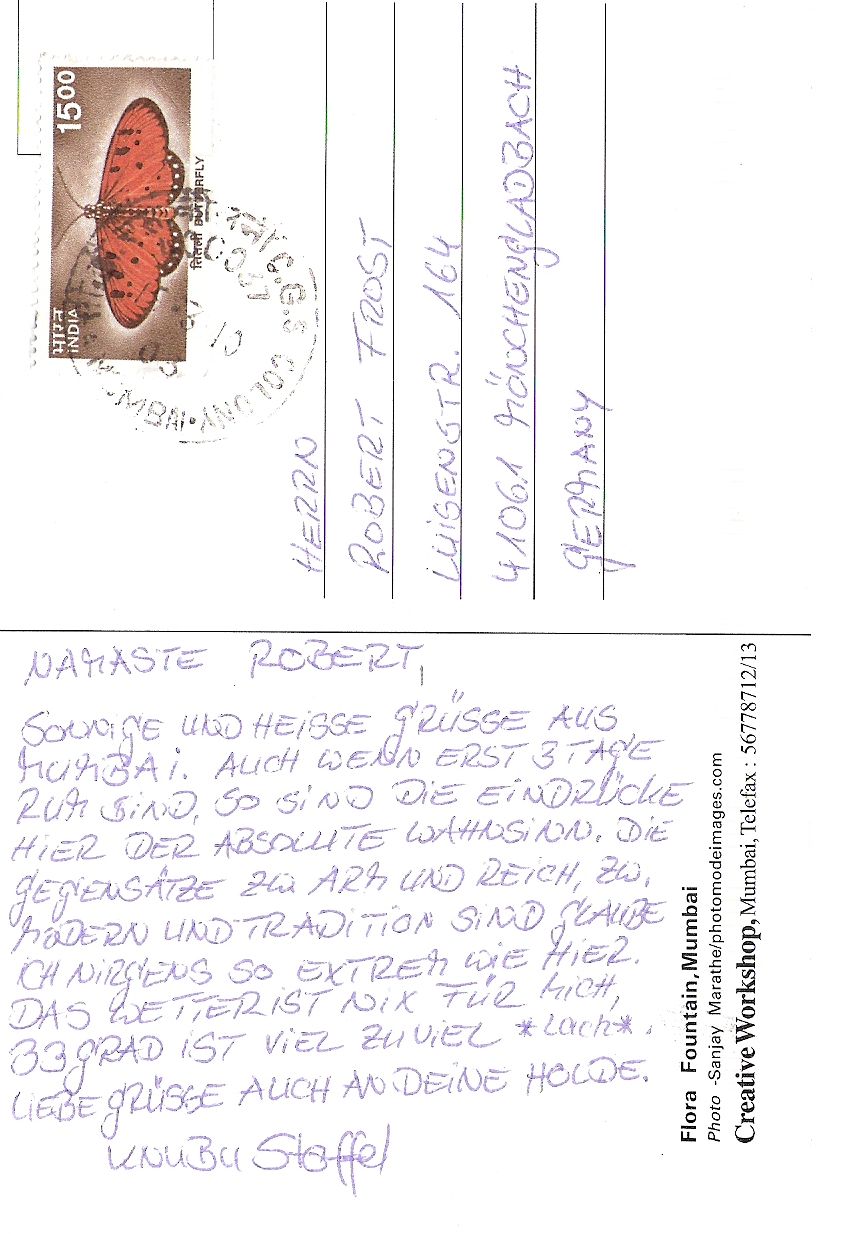 NAMASTE ROBERT,
SONNIGE UND HEISSE GRÜSSE AUS
MUMBAI. AUCH WENN ERST 3 TAGE
RUM SIND, SO SIND DIE EINDRÜCKE
HIER DER ABSOLUTE WAHNSINN. DIE
GEGENSÄTZE ZW ARM UND REICH, ZW.
MODERN UND TRADITION SIND GLAUBE
ICH NIRGENS SO EXTREM WIE HIER.
DAS WETTER IST NIX FÜR MICH,
33 GRAD IST VIEL ZUVIEL *LACH*.
LIEBE GRÜSSE AUCH AN DEINE HOLDE.
KNUBU Stoffel
HERRN
ROBERT FROST
LUISENSTR. 164
41061 MÖNCHENGLADBACH
GERMANY
भारत
INDIA
1500
तितली BUTTERFLY
MUMBAI • COLONY
Flora Fountain, Mumbai
Photo -Sanjay Marathe/photomodeimages.com
Creative Workshop, Mumbai, Telefax : 56778712/13